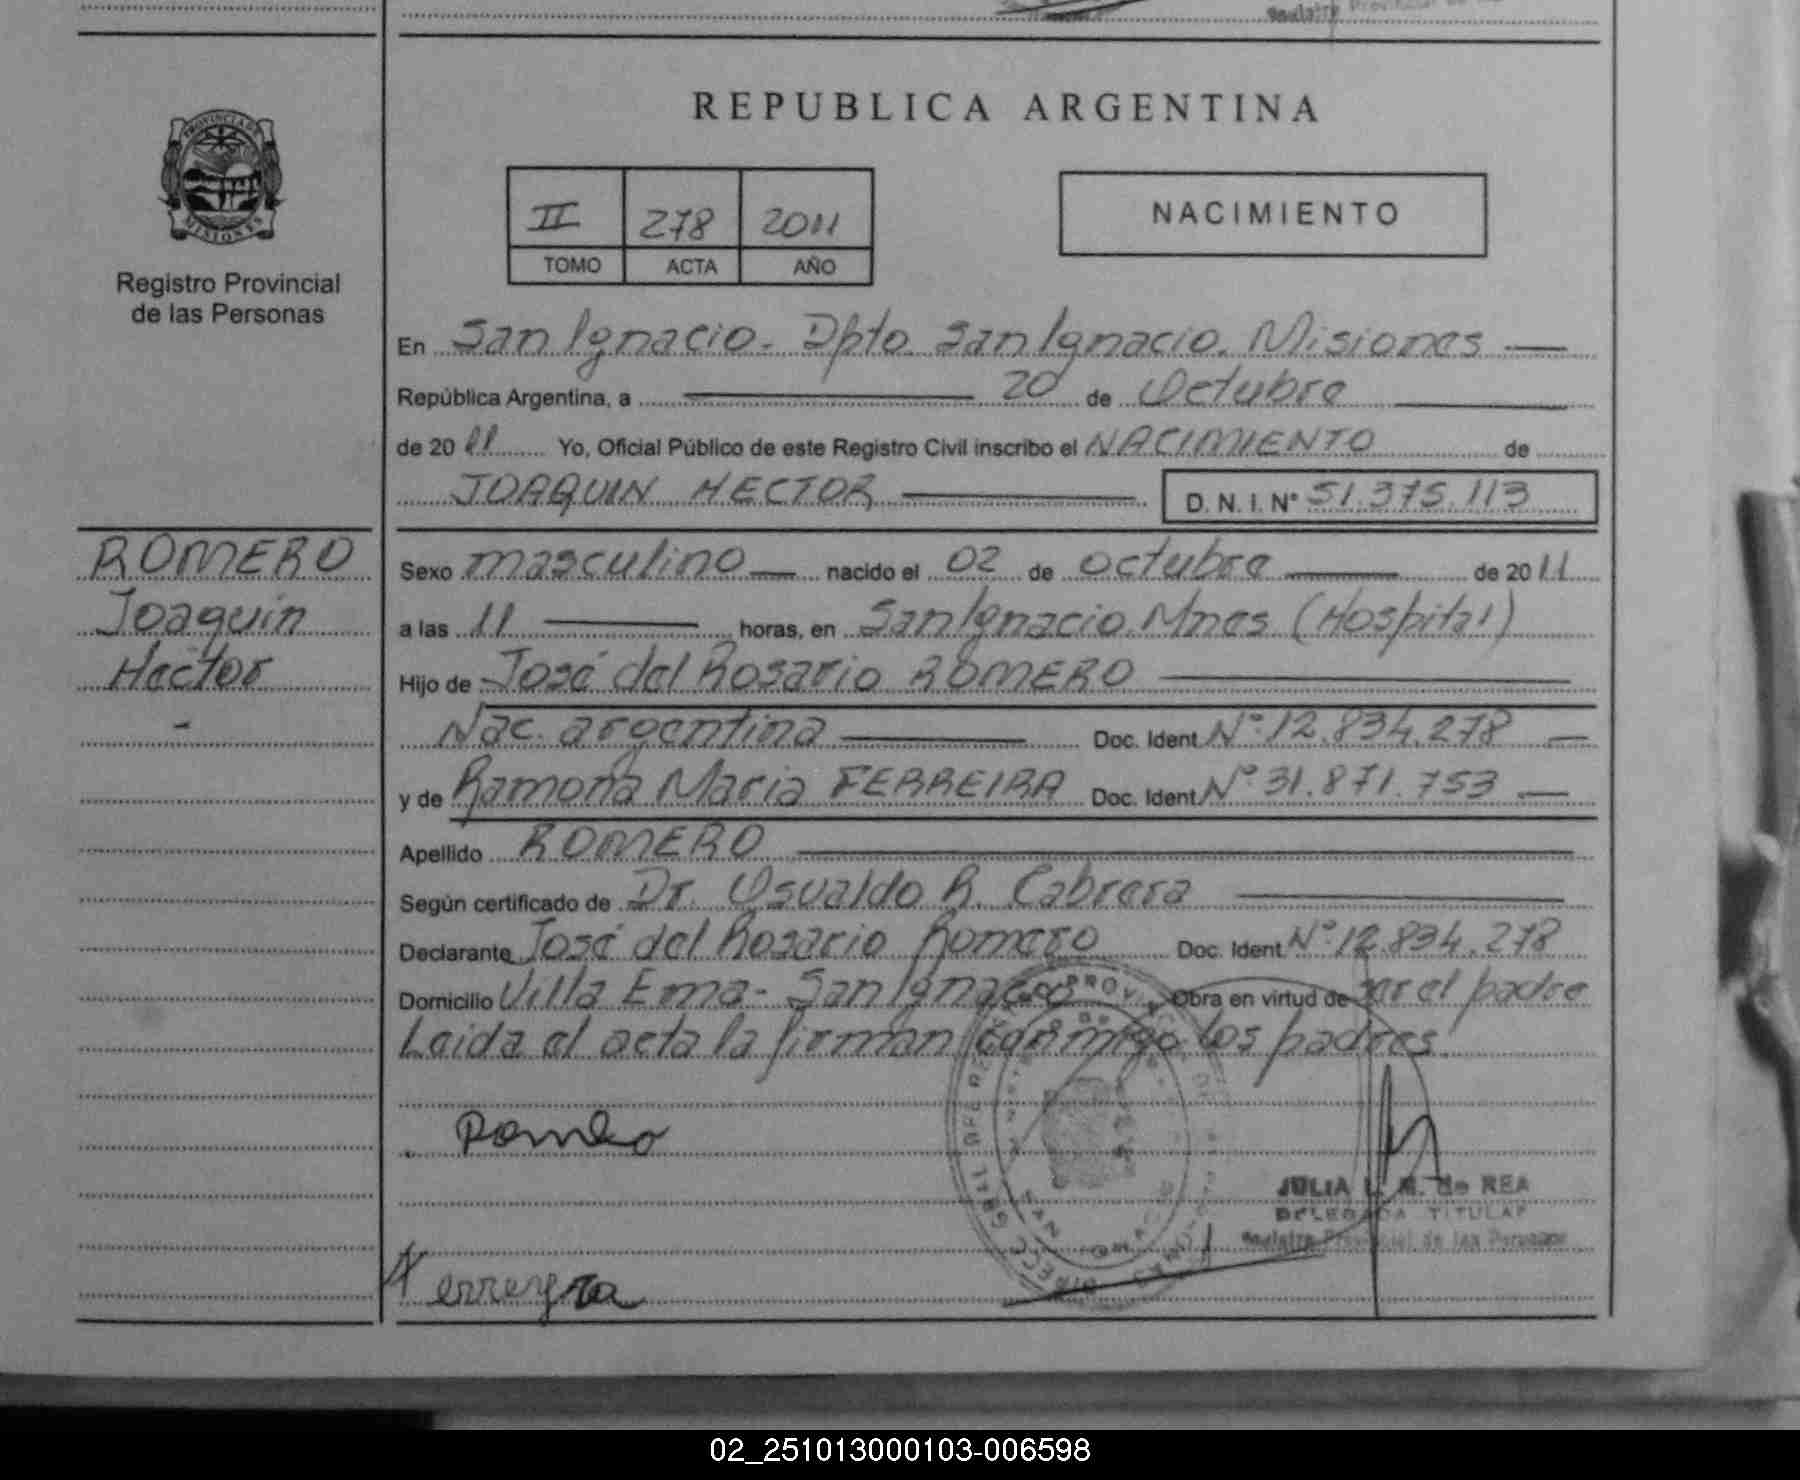 REPUBLICA ARGENTINA
PROVINCIA DE
MISIONES
Registro Provincial
de las Personas
II 278 2011
TOMO ACTA AÑO
NACIMIENTO
En San Ignacio. Dpto. San Ignacio. Misiones
República Argentina, a 20 de Octubre
de 2011 Yo, Oficial Público de este Registro Civil inscribo el NACIMIENTO de
JOAQUIN HECTOR D. N. I. N° 51.375.113
ROMERO
Joaquin
Hector
-
Sexo masculino nacido el 02 de octubre de 2011
a las 11 horas, en San Ignacio. Mnes (Hospital)
Hijo de José del Rosario ROMERO
Nac. argentina Doc. Ident N° 12.834.278
y de Ramona Maria FERREIRA Doc. Ident N° 31.871.753
Apellido ROMERO
Según certificado de Dr. Osvaldo R. Cabrera
Declarante José del Rosario Romero Doc. Ident N° 12.834.278
Domicilio Villa Ema - San Ignacio Obra en virtud de ser el padre
Leida el acta la firman conmigo los padres.
Romero
JULIA L. M. de REA
DELEGADA TITULAR
Registro Provincial de las Personas
Ferreyra
02_251013000103-006598